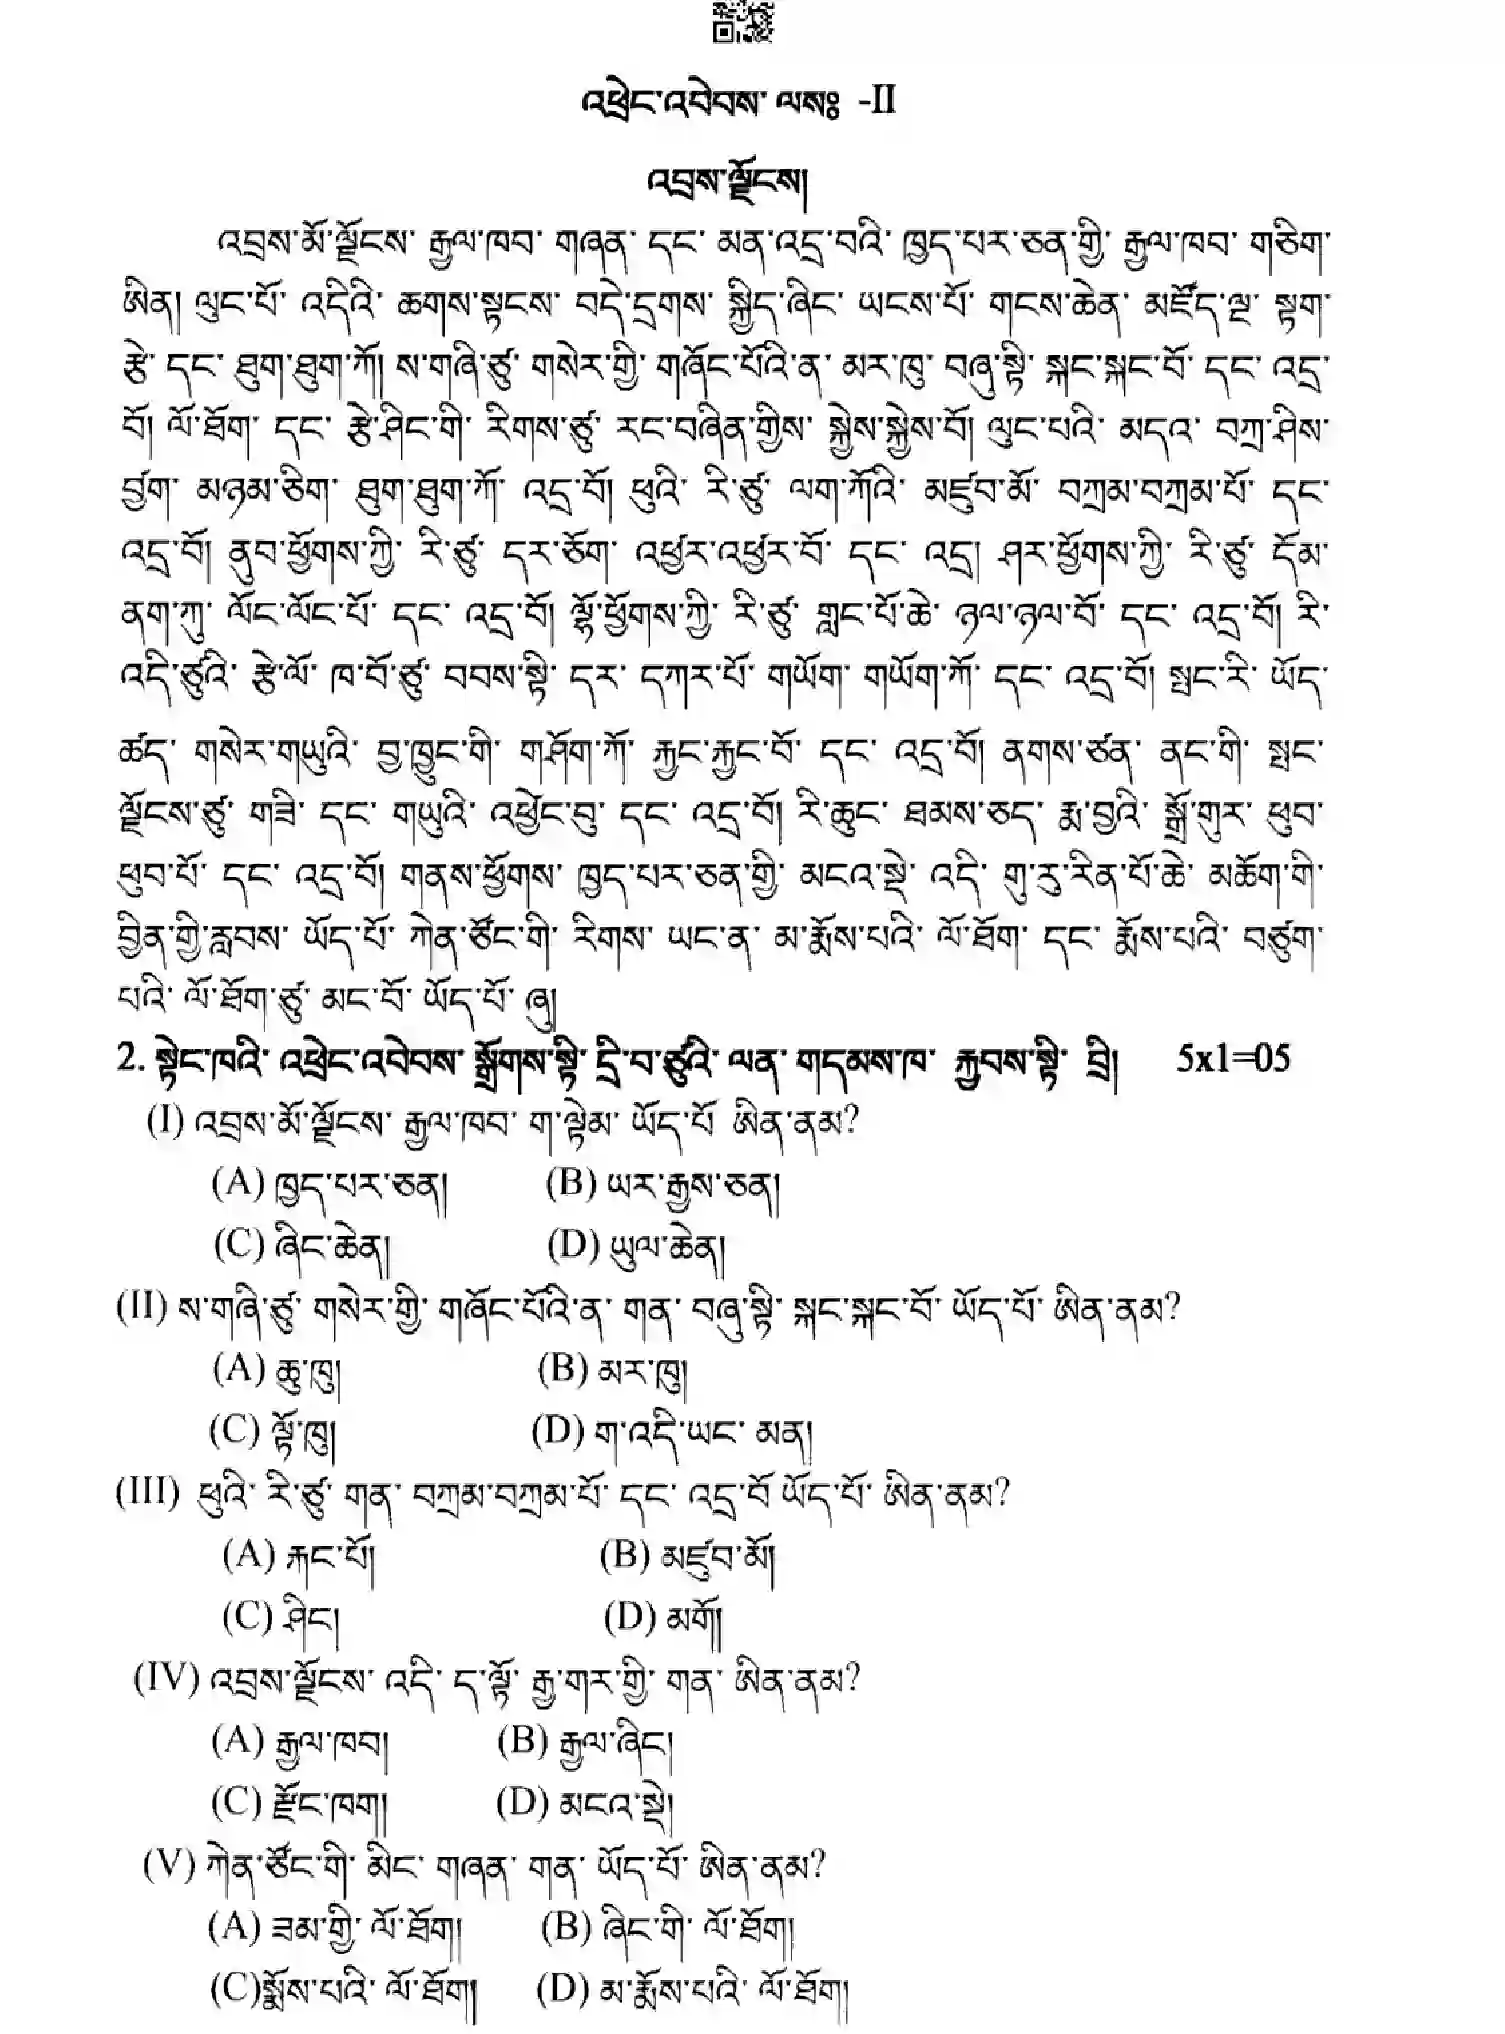 འཕྲེང་འབེབས་ ལསཿ -II
འབྲས་ལྗོངས།
འབྲས་མོ་ལྗོངས་ རྒྱལ་ཁབ་ གཞན་ དང་ མན་འདྲ་བའི་ ཁྱད་པར་ཅན་གྱི་ རྒྱལ་ཁབ་ གཅིག་
ཨིན། ལུང་པོ་ འདིའི་ ཆགས་སྟངས་ བདེ་དྲགས་ སྐྱིད་ཞིང་ ཡངས་པོ་ གངས་ཆེན་ མཛོད་ལྔ་ སྟག་
རྩེ་ དང་ ཐུག་ཐུག་ཀོ། ས་གཞི་ཙུ་ གསེར་གྱི་ གཞོང་པོའི་ན་ མར་ཁུ་ བཞུ་སྟི་ སྐང་སྐང་བོ་ དང་ འདྲ་
བོ། ལོ་ཐོག་ དང་ རྩེ་ཤིང་གི་ རིགས་ཙུ་ རང་བཞིན་གྱིས་ སྐྱེས་སྐྱེས་བོ། ལུང་པའི་ མདའ་ བཀྲ་ཤིས་
བྱོག་ མཉམ་ཅིག་ ཐུག་ཐུག་ཀོ་ འདྲ་བོ། ཕུའི་ རི་ཙུ་ ལག་ཀོའི་ མཛུབ་མོ་ བཀྲམ་བཀྲམ་པོ་ དང་
འདྲ་བོ། ནུབ་ཕྱོགས་ཀྱི་ རི་ཙུ་ དར་ཅོག་ འཕྱར་འཕྱར་བོ་ དང་ འདྲ། ཤར་ཕྱོགས་ཀྱི་ རི་ཙུ་ དོམ་
ནག་ཀུ་ ལོང་ལོང་པོ་ དང་ འདྲ་བོ། ལྷོ་ཕྱོགས་ཀྱི་ རི་ཙུ་ གླང་པོ་ཆེ་ ཉལ་ཉལ་བོ་ དང་ འདྲ་བོ། རི་
འདི་ཙུའི་ རྩེ་ལོ་ ཁ་བོ་ཙུ་ བབས་སྟི་ དར་ དཀར་པོ་ གཡོག་ གཡོག་ཀོ་ དང་ འདྲ་བོ། སྤང་རི་ ཡོད་
ཚད་ གསེར་གཡུའི་ བྱ་ཁྱུང་གི་ གཤོག་ཀོ་ རྐྱང་རྐྱང་བོ་ དང་ འདྲ་བོ། ནགས་ཙན་ ནང་གི་ སྤང་
ལྗོངས་ཙུ་ གཟི་ དང་ གཡུའི་ འཕྱེང་བུ་ དང་ འདྲ་བོ། རི་ཆུང་ ཐམས་ཅད་ རྨ་བྱའི་ སྒྲོ་གུར་ ཕུབ་
ཕུབ་པོ་ དང་ འདྲ་བོ། གནས་ཕྱོགས་ ཁྱད་པར་ཅན་གྱི་ མངའ་སྡེ་ འདི་ གུ་རུ་རིན་པོ་ཆེ་ མཆོག་གི་
བྱིན་གྱི་རླབས་ ཡོད་པོ་ ཀེན་ཙོང་གི་ རིགས་ ཡང་ན་ མ་རྨོས་པའི་ ལོ་ཐོག་ དང་ རྨོས་པའི་ བཙུག་
པའི་ ལོ་ཐོག་ཙུ་ མང་བོ་ ཡོད་པོ་ ཞུ།
2. སྟེང་ཁའི་ འཕྲེང་འབེབས་ སྒྲོགས་སྟི་ དྲི་བ་ཙུའི་ ལན་ གདམས་ཁ་ རྐྱབས་སྟི་ བྲི། 5x1=05
(I) འབྲས་མོ་ལྗོངས་ རྒྱལ་ཁབ་ ག་ལྟེམ་ ཡོད་པོ་ ཨིན་ནམ?
(A) ཁྱད་པར་ཅན། (B) ཡར་རྒྱས་ཅན།
(C) ཞིང་ཆེན། (D) ཡུལ་ཆེན།
(II) ས་གཞི་ཙུ་ གསེར་གྱི་ གཞོང་པོའི་ན་ གན་ བཞུ་སྟི་ སྐང་སྐང་བོ་ ཡོད་པོ་ ཨིན་ནམ?
(A) ཆུ་ཁུ། (B) མར་ཁུ།
(C) ལྟོ་ཁུ། (D) ག་འདི་ཡང་ མན།
(III) ཕུའི་ རི་ཙུ་ གན་ བཀྲམ་བཀྲམ་པོ་ དང་ འདྲ་བོ ཡོད་པོ་ ཨིན་ནམ?
(A) རྐང་པོ། (B) མཛུབ་མོ།
(C) ཤིང། (D) མགོ།
(IV) འབྲས་ལྗོངས་ འདི་ ད་ལྟོ་ རྒྱ་གར་གྱི་ གན་ ཨིན་ནམ?
(A) རྒྱལ་ཁབ། (B) རྒྱལ་ཞིང།
(C) རྫོང་ཁག། (D) མངའ་སྡེ།
(V) ཀེན་ཙོང་གི་ མིང་ གཞན་ གན་ ཡོད་པོ་ ཨིན་ནམ?
(A) ཟམ་གྱི་ ལོ་ཐོག། (B) ཞིང་གི་ ལོ་ཐོག།
(C)སྨོས་པའི་ ལོ་ཐོག། (D) མ་རྨོས་པའི་ ལོ་ཐོག།